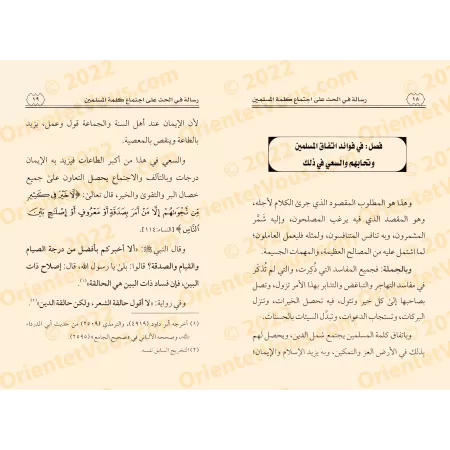 ١٨ رسالة في الحث على اجتماع كلمة المسلمين
فصل: في فوائد اتفاق المسلمين
وتحابهم والسعي في ذلك
وهذا هو المطلوب المقصود الذي جرى الكلام لأجله،
وهو المقصد الذي فيه يرغب المصلحون، وإليه شَمَّر
المشمرون، وبه تنافس المتنافسون، ولمثله فليعمل العاملون؛
لما اشتمل عليه من المصالح العظيمة، والمهمات الجسيمة.
وبالجملة: فجميع المفاسد التي ذُكِرت، والتي لم تُذكر
في مفاسد التهاجر والتباغض والتدابر بهذا الأمر تزول، وتصل
بصاحبها إلى كل خير وتنول، فبه تحصل الخيرات، وتنزل
البركات، وتستجاب الدعوات، وتبدَّل السيئات بالحسنات.
وباتفاق كلمة المسلمين يجتمع شمل الدين، ويحصل لهم
بذلك في الأرض العز والتمكين، وبه يزيد الإسلام والإيمان؛
رسالة في الحث على اجتماع كلمة المسلمين ١٩
لأن الإيمان عند أهل السنة والجماعة قول وعمل، يزيد
بالطاعة وينقص بالمعصية.
والسعي في هذا من أكبر الطاعات فيزيد به الإيمان
درجات وبالتآلف والاجتماع يحصل التعاون على جميع
خصال البر والتقوى والخير، قال تعالى: ﴿لَّا خَيْرَ فِي كَثِيرٍ
مِّن نَّجْوَىٰهُمْ إِلَّا مَنْ أَمَرَ بِصَدَقَةٍ أَوْ مَعْرُوفٍ أَوْ إِصْلَٰحٍ بَيْنَ
ٱلنَّاسِ﴾ [النساء: ١١٤].
وقال النبي ﷺ: «ألا أخبركم بأفضل من درجة الصيام
والقيام والصدقة؟ قالوا: بلىٰ يا رسول الله، قال: إصلاح ذات
البين، فإن فساد ذات البين هي الحالقة»(١).
وفي رواية: «لا أقول حالقة الشعر، ولكن حالقة الدين»(٢).
(١) أخرجه أبو داود (٤٩١٩)، والترمذي (٢٥٠٩) من حديث أبي الدرداء
، وصححه الألباني في «صحيح الجامع» (٢٥٩٥).
(٢) التخريج السابق نفسه.
© 2022
OrientetV